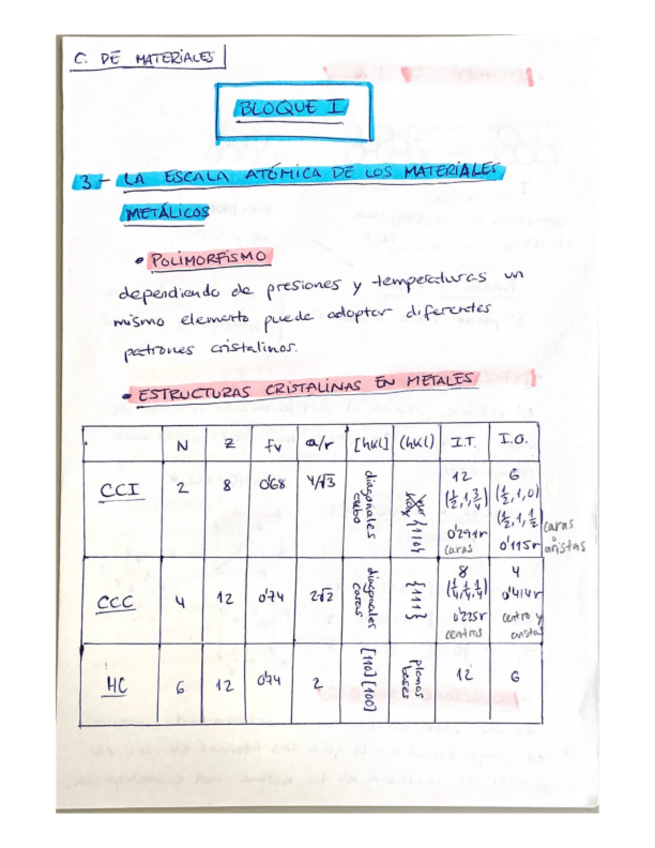 C. DE MATERIALES
BLOQUE I
3- LA ESCALA ATÓMICA DE LOS MATERIALES
METÁLICOS
• POLIMORFISMO
dependiendo de presiones y temperaturas un
mismo elemento puede adoptar diferentes
patrones cristalinos.
• ESTRUCTURAS CRISTALINAS EN METALES
N Z fv a/r [hkl] (hkl) I.T. I.O.
CCI 2 8 0'68 4/√3 diagonales cubo {110} 12 (½,1,¾) 0'291r caras 6 (½,1,0) (½,1,½) 0'115r caras o aristas
CCC 4 12 0'74 2√2 diagonales caras {111} 8 (¼,¼,¼) 0'225r centros 4 0'414r centro y aristas
HC 6 12 0'74 2 [110] [100] planos bases 12 6